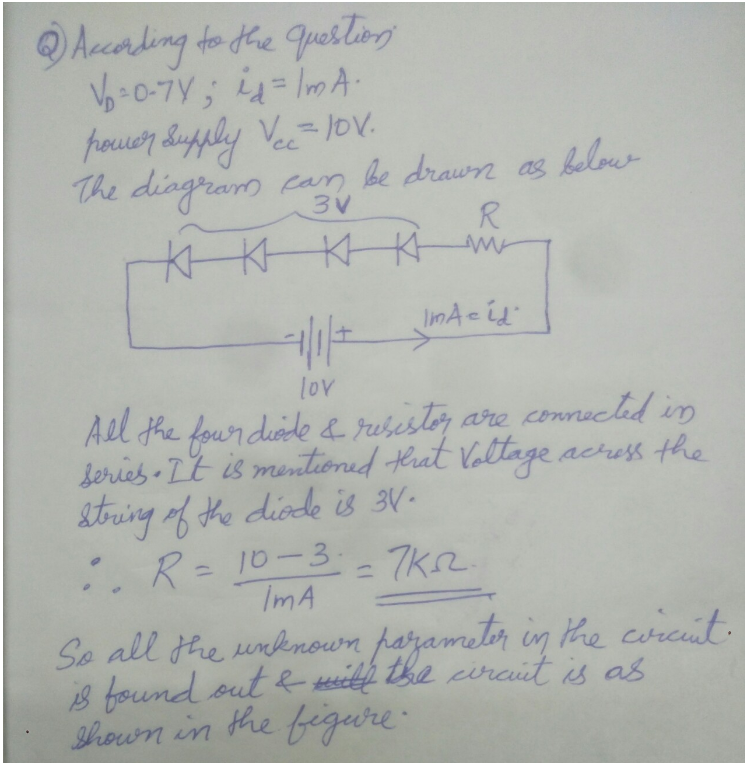 Q) According to the question
V_D=0.7V; i_d=1mA.
power supply V_cc=10V.
The diagram can be drawn as below
3V
R
1mA=i_d.
- +
10V
All the four diode & resistor are connected in
series. It is mentioned that Voltage across the
string of the diode is 3V.
∴ R = 10-3 / 1mA = 7KΩ.
So all the unknown parameter in the circuit
is found out & the circuit is as
shown in the figure.